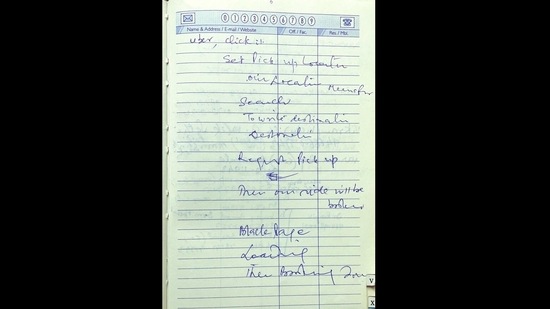 0 1 2 3 4 5 6 7 8 9
Name & Address / E.mail / Website Off / Fac. Res / Mbl.
uber, click it
Set Pick up Location
our Location
Search
To write destination
Destination
Request Pick up
Then our ride will be
booked
Black Page
Loading
Then Booking
V
X